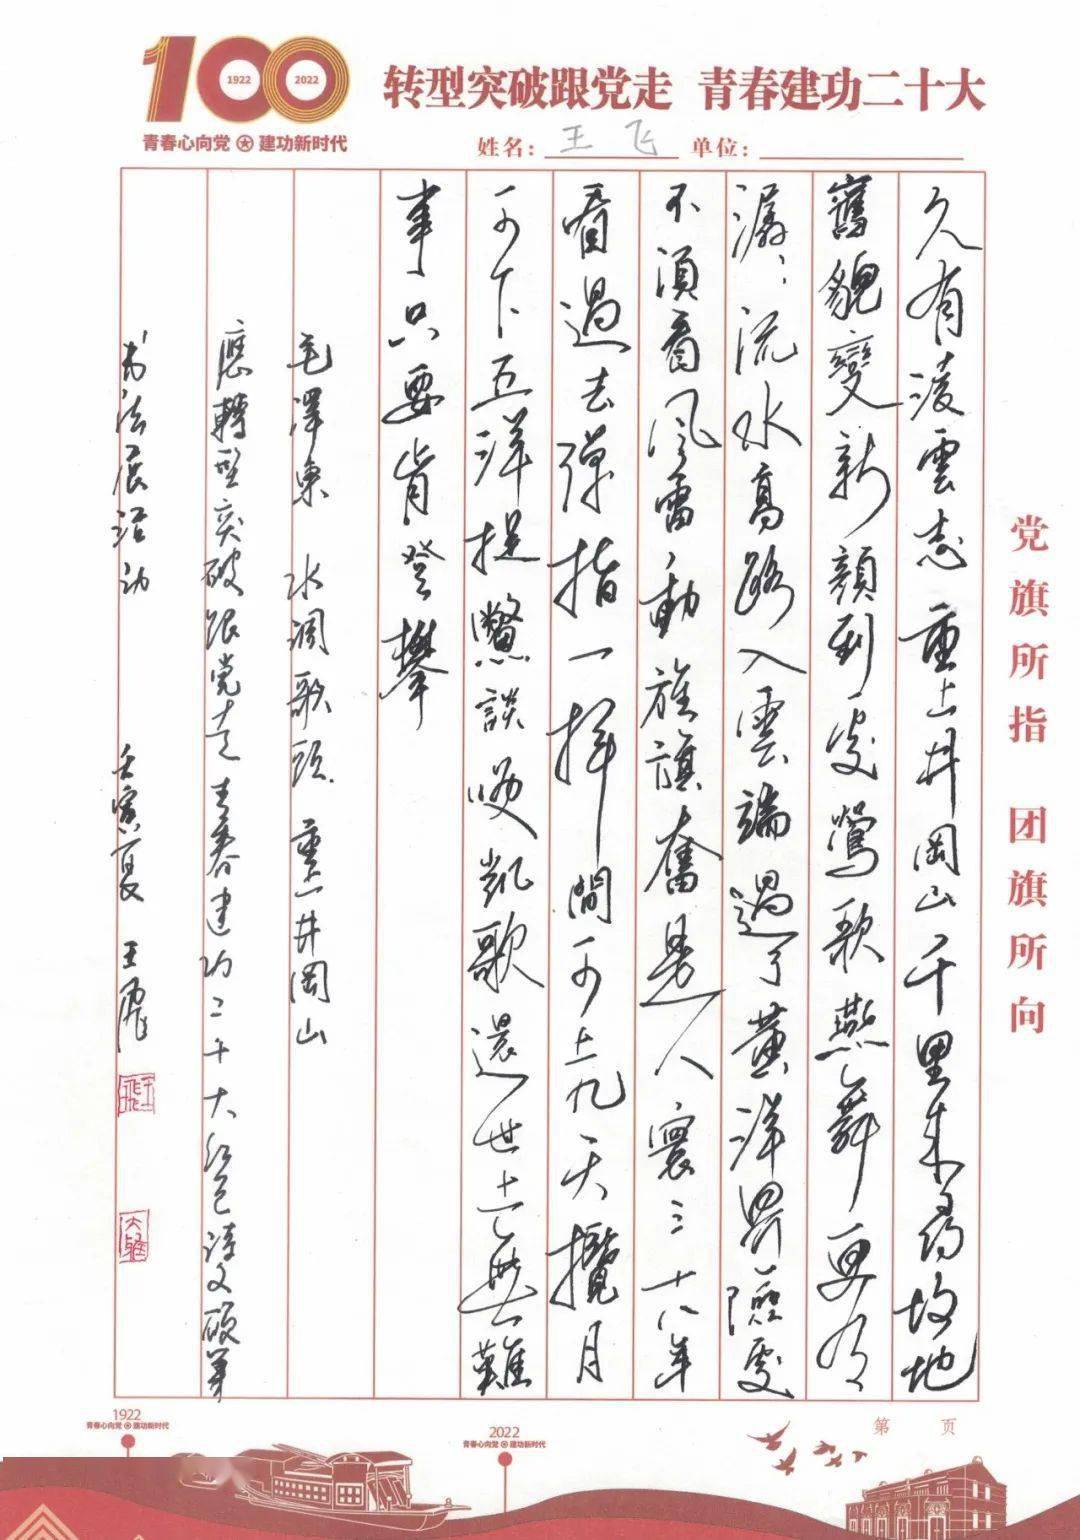 100
1922
2022
青春心向党 建功新时代
转型突破跟党走 青春建功二十大
姓名：王飞 单位：
久有淩雲志重上井岡山千里來尋故地
舊貌變新顔到處鶯歌燕舞更有
潺〻流水高路入雲端過了黄洋界險處
不須看風雷動旌旗奮是人寰三十八年
看過去彈指一揮間可上九天攬月
可下五洋捉鱉談笑凱歌還世上無難
事只要肯登攀
毛澤東 水調歌頭 重上井岡山
應轉型突破跟党走青春建功二十大紅色詩文硬筆
书法展活动 壬寅夏 王飛
王飛
大雅
党旗所指 团旗所向
1922
青春心向党 建功新时代
2022
青春心向党 建功新时代
第 页